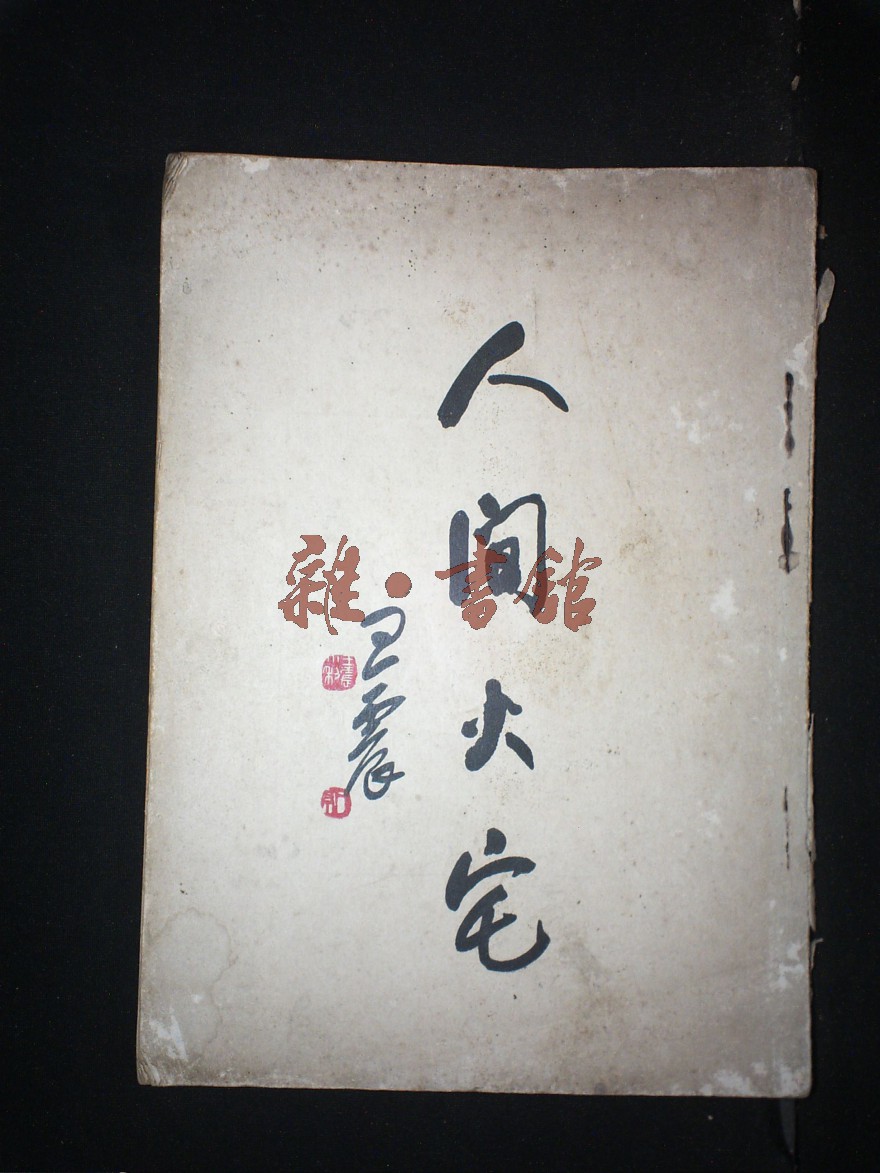 人間火宅
王震
雜·書館